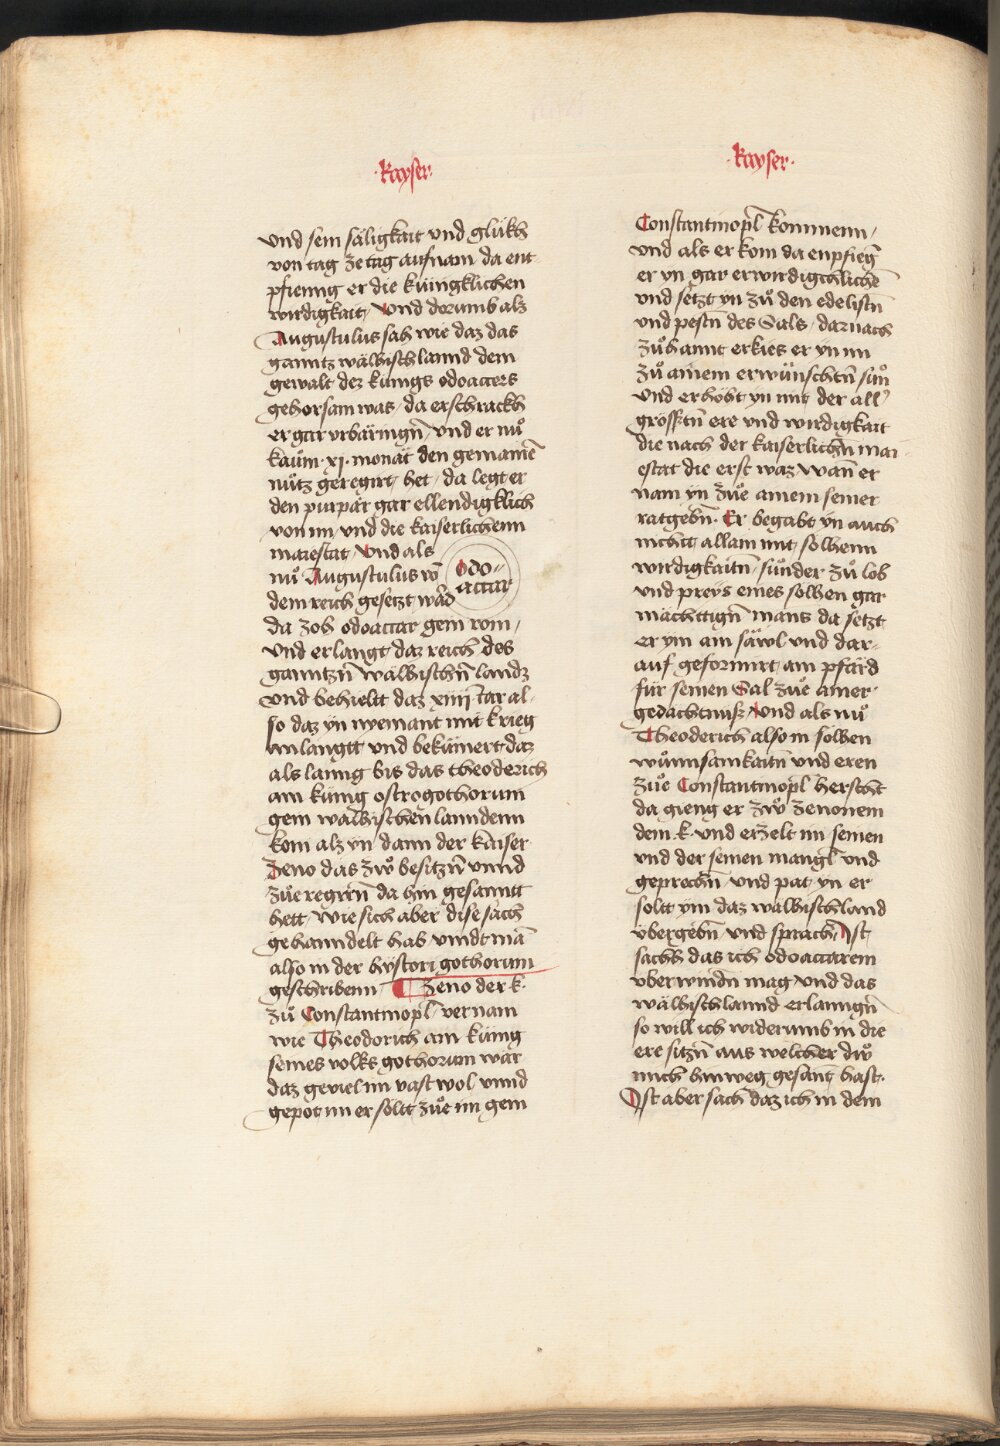 ·kayser·
und sein säligkait vnd glükh
von tag ze tag aufnam da ent-
pfienng er die küngklichen
wirdigkait, Vnd dorumb als
Augustulus sah wie daz das
ganntz wälhisch lannd dem
gewalt dez künigs odoacers
gehorsam was, da erschrackh
er gar vrbäringn̄ vnd er nůͤ
kaům· xj· monät den gemainē
nůtz geregirt, het, da legt er
den purpär gar ellendigklich
von im, vnd die kaiserlichenn
maiestat, Vnd als
nů Augustulus vō
dem reich gesetzt wād
Odo-
accar
da zoh odoaccar gein rom,
vnd erlangt daz reich des
ganntzn̄ wälhischn̄ landz
vnd behieltt daz xiiij Iar al-
so daz yn nyemant mit krieg
anlangtt vnd bekümert daz
als lanng bis das theoderich
ain künig ostrogothorum
gein wälhischen lanndenn
kom als yn dann der kaiser
Zeno das zwͦ besitzn̄ vnnd
zůe regirn̄ da hin gesanntt
hett, wie sich aber dise sach
gehanndelt hab vindt mā
also in der hystori gothorum
geschribenn, Zeno der k·
zů Constantinopl̄ vernam
wie Theodorich ain künig
seines volks gothorum wär
daz geviel im vast wol vnnd
gepot im er soltt zůe im gein
·kayser·
Constantinopl̄ kommenn,
vnd als er kom da enpfienḡ
er yn gar erwirdigchlichē
vnd setzt yn zů den edelistn̄
vnd pestn̄ des Sals, darnach
zůhannt erkies er yn im
zů ainem erwünschtn̄ sůn
vnd erhöbt yn mit der all
grösstn̄ ere vnd wirdigkait
die nach der kaiserlichn̄ mai-
estat die erst waz wan̄ er
nam yn zůe ainem seiner
ratgebn̄· Er begabt yn auch
nichtt allain mit solhenn
wirdigkaitn̄, sůnder zů lob
vnd preys eines solhen gar
mächttign̄ mans da setzt
er ym ain säwl vnd dar-
auf geformirt ain pfärd
für seinen Sal zůe ainer·
gedächtnuß Vnd als nů
Theoderich also in solhen
wůnnsamkaitn̄ vnd eren
zůe Constantinopl̄ herscht
da gieng er zwͦ zenonem
dem k· vnd erzelt im seinen
vnd der seinen mangl̄ vnd
geprechn̄ vnd pat yn er
soltt ym daz wälhischland
vbergebn̄, vnd sprach, Ist
sachh das ich odoaccarem
vberwindn̄ mag vnd das
wälhischlannd erlanngn̄
so will ich widerumb in die
ere sitzn̄ aus welcher dwͦ
mich hinweg gesant̄ hast·
Ist aber sach daz ich in dem